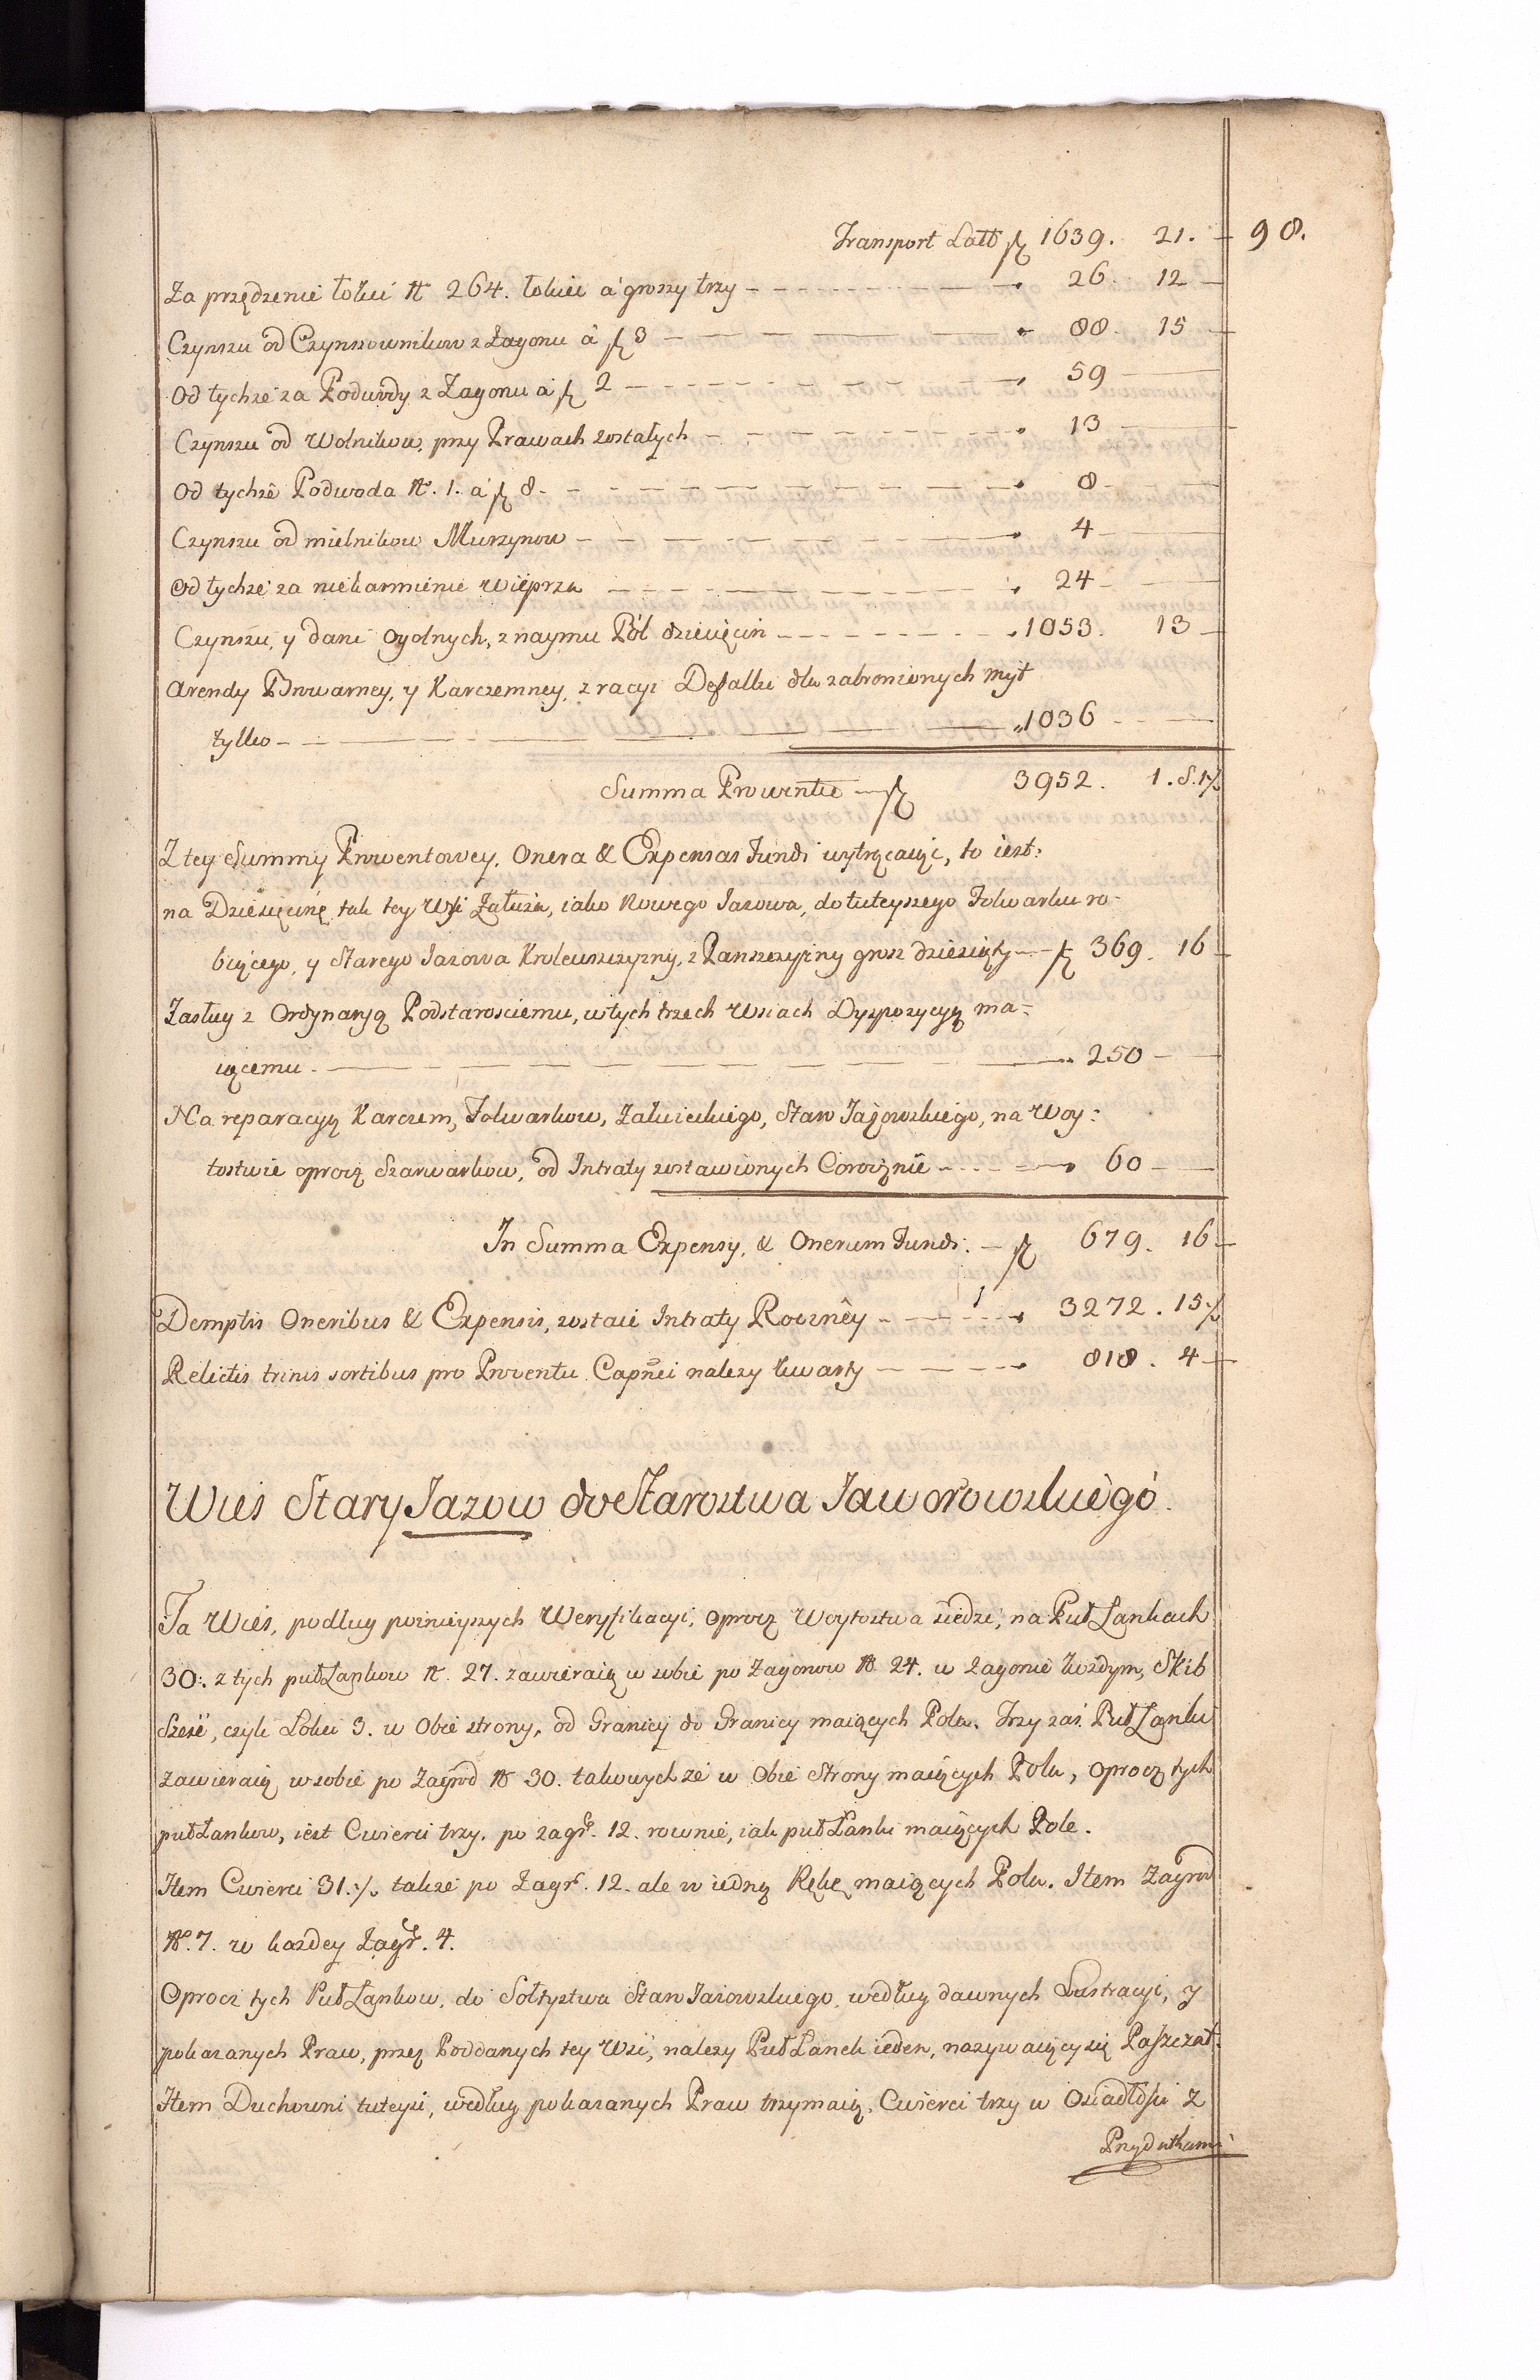 Transport Latt fl 1639. 21. 98.
Za przędzenie łokci N 264. łokiec a groszy trzy „ 26. 12
Czynszu od Czynszownikow z Zagonu a fl 3 „ 88. 15
Od tychze za Podwody z Zagonu a fl 2 „ 59
Czynszu od Wolnikow, przy Prawach zostałych „ 13
Od tychze Podwoda N. 1. a fl 8. „ 8
Czynszu od mielnikow Murzynow „ 4
Od tychze za niekarmienie wieprza „ 24
Czynszu, y dani ogolnych, z naymu Pól dziesięcin „ 1053. 13
Arendy Browarney, y Karczemney, z racyi Defalki dla zabronionych myt
tylko „ 1036
Summa Prowentu fl 3952. 1. S. 1 ·/.
Z tey Summy Prowentowey, Onera & Expensas Fundi wytrącaiąc, to iest:
na Dziesięcinę tak tey Wsi Załuża, iako Nowego Jazowa, do tuteyszego Folwarku ro-
biącego, y Starego Jazowa Krolewszczyzny, z Panszczyzny grosz dziesiąty fl 369. 16
Zasług z Ordynaryą Podstarosciemu, w tych trzech Wsiach Dyspozycyą ma-
iącemu „ 250
Na reparacyą Karczem, Folwarkow, Załuzeckiego, Staro Jazowskiego, na Woy:
tostwie oprocz Szarwarkow, od Intraty zostawionych Corocznie „ 60
In Summa Expensy, & Onerum Fundi. fl 679. 16
Demptis Oneribus & Expensis, zostaie Intraty Roczney „ 3272. 15 ·/.
Relictis trinis sortibus pro Proventu Capñei nalezy kwarty „ 818. 4
Wies Stary Jazow do Starostwa Jaworowskiego.
Ta Wieś, podług poznieyszych Weryfikacyi, oprocz Woytostwa siedzi, na Puł Łankach
30:. z tych puł Łankow N. 27. zawieraią w sobie po Zagonow N 24. w Zagonie każdym, Skib
Sześć, czyli Łokci 3. w Obie strony, od Granicy do Granicy maiących Pola. Trzy zaś Puł Łanki
zawieraią w sobie po Zagrod N 30. takowychze w Obie Strony maiących Pola, oprocz tych
puł Łankow, iest Cwierci trzy. po zagr. 12. rownie, iak puł Łanki maiących Pole.
Item Cwierci 31. ·/. takze po Zagr. 12. ale w iedną Rękę maiących Pola. Item Zagrod
N. 7. w kazdey Zagr. 4.
Oprocz tych Puł Łankow, do Sołtystwa Staro Jazowskiego, według dawnych Lustracyi, y
pokazanych Praw, przez Poddanych tey Wsi, nalezy Puł Lanek ieden, nazywaiący się Paszczał:
Item Duchowni tuteysi, według pokazanych Praw trzymaią, Cwierci trzy w Osiadłości z
Przydatkami